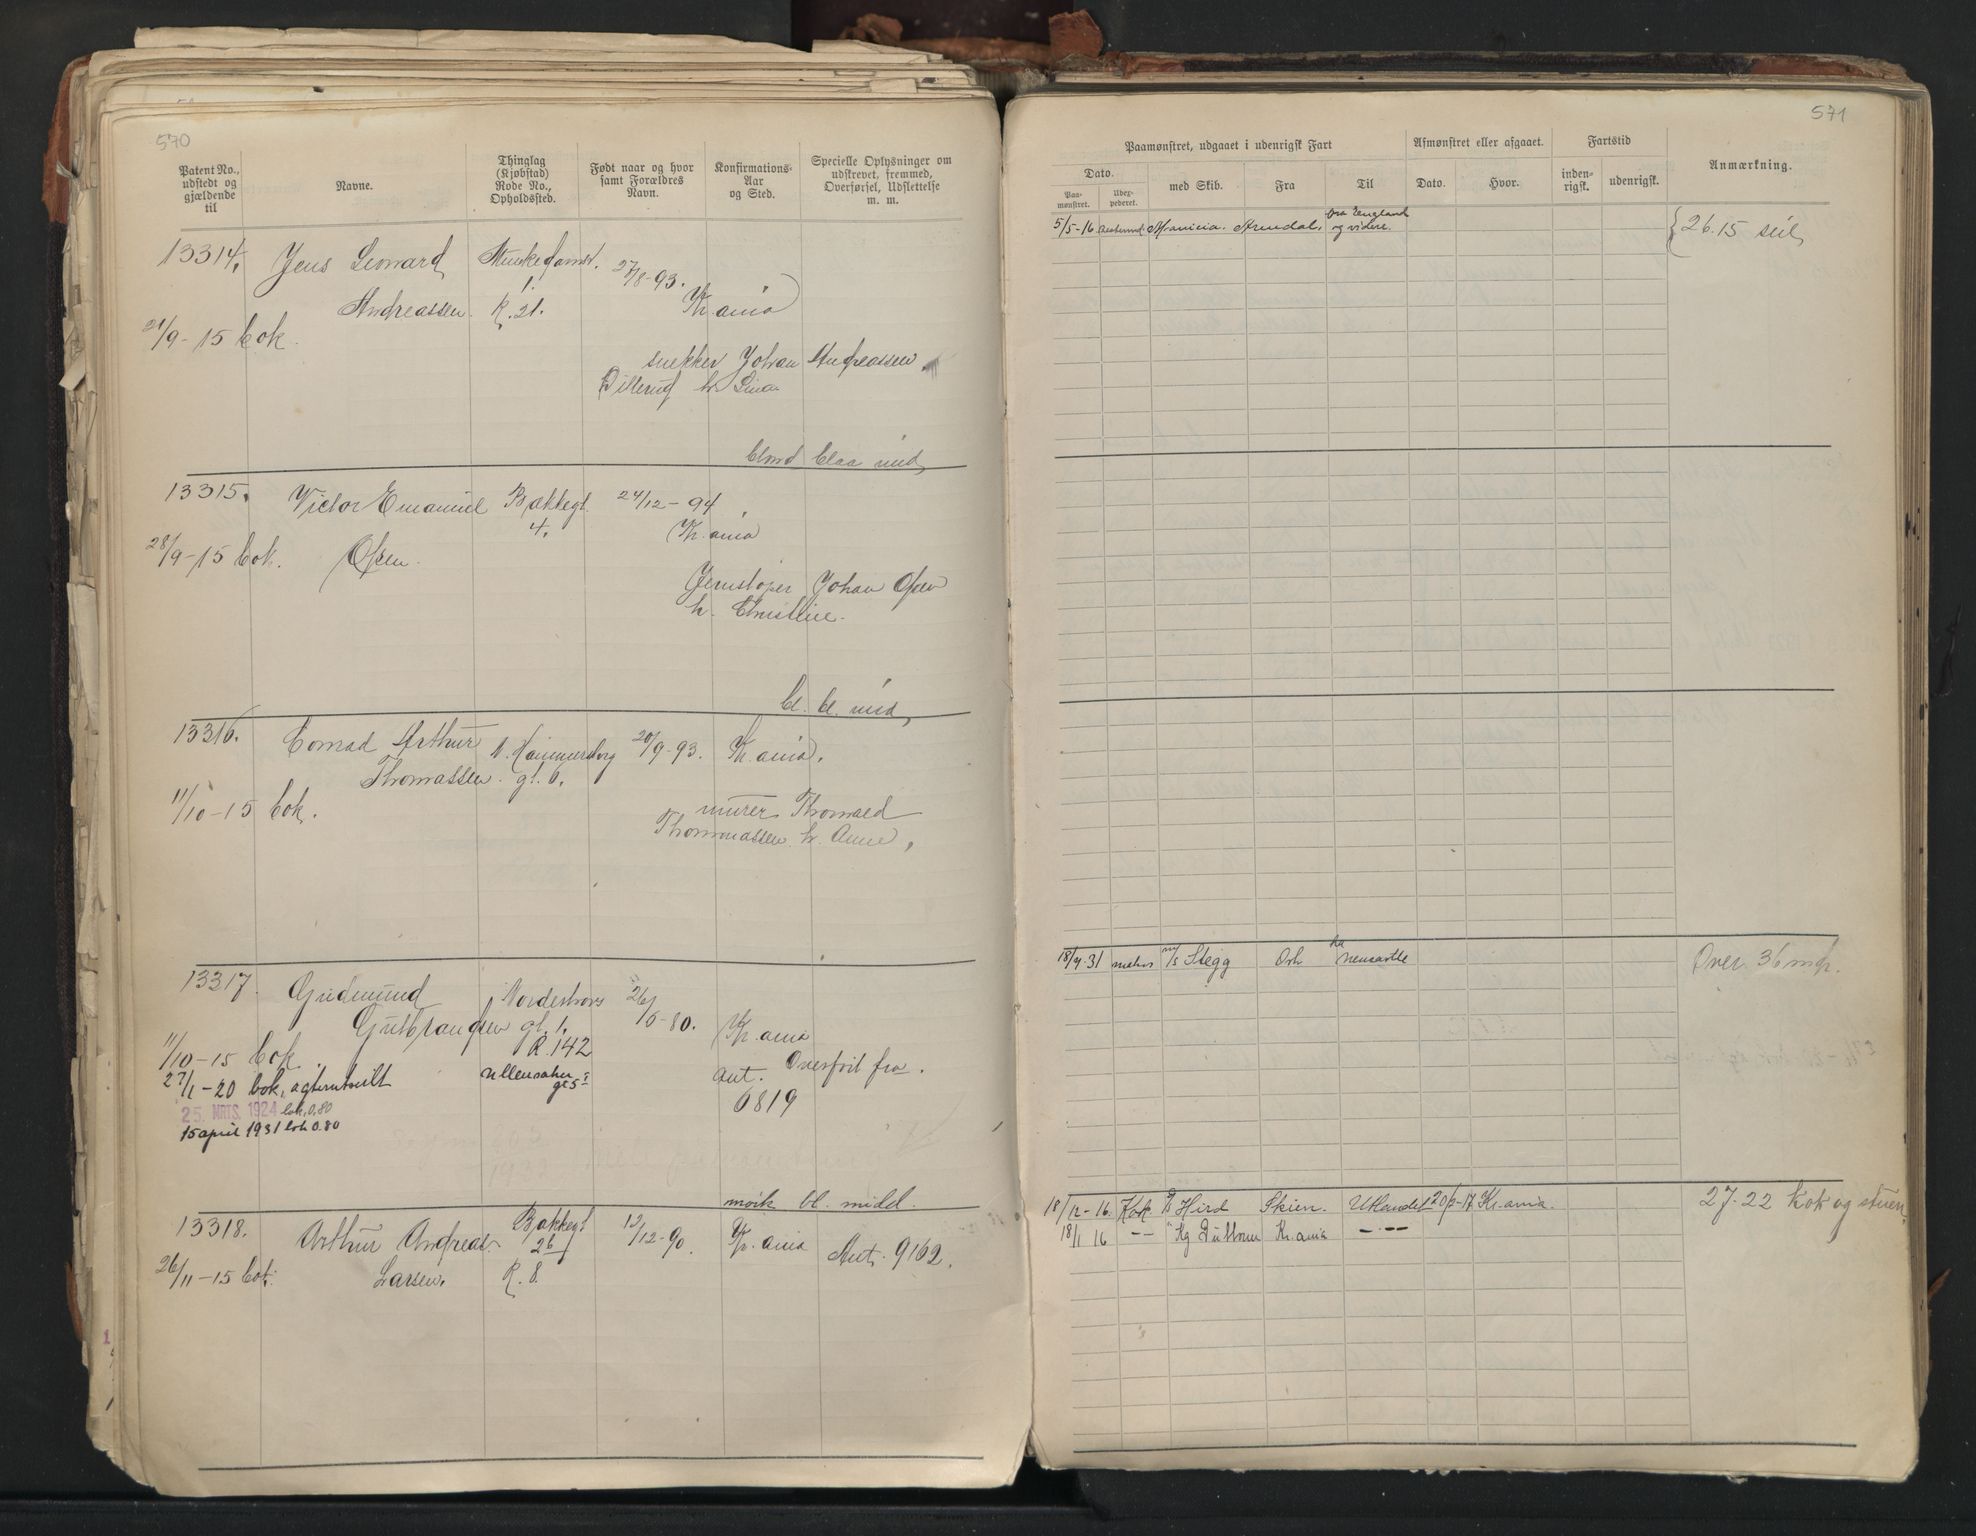 570
Patent No., udstedt og gjældende til
Navne.
Thinglag (Kjøbstad) Rode No., Opholdssted.
Født naar og hvor samt Forældres Navn.
Konfirmations-Aar og Sted.
Specielle Oplysninger om udskrevet, fremmed, Overførsel, Udslettelse m. m.
13314. Jens Leonard Munkedamsv. 27/8-93.
Andreassen. R. 21. Kr.ania
21/9-15 bok.
snekker Johan Andreassen
h. Lina
blond blaa mid
13315. Victor Emanuel Bakkegt. 24/12-94
4. Kr.ania
28/9-15 bok. Olsen.
Johan Olsen
h. Christine.
bl. bl. mid
13316. Conrad Arthur N. Hammersborg 20/9-93. Kr.ania.
Thomassen. gt. 6.
11/10-15 bok.
murer Thorvald
Thommassen h. Anne,
13317. Gudmund 26/6-80.
Gutbrandsen gt. 1. Kr.ania
11/10-15 bok R. 142 Overført fra
27/1-20 bok, Ullensaker gt 5 Ant. 6819
25. MRTS. 1924 bok 0,80
15 april 1931 bok 0.80
mørk bl. midd.
13318. Arthur Andreas Bakkegt 12/12-90. Kr.ania Ant. 9162.
26
26/11-15 bok. Larsen. R. 8.
571
Paamønstret, udgaaet i udenrigsk Fart
Afmønstret eller afgaaet.
Fartstid
Anmærkning.
Dato.
Paamønstret.
Udexpederet.
med Skib.
Fra
Til
Dato.
Hvor.
indenrigsk.
udenrigsk.
5/5-16 Arendal, England
og videre.
26.15 seil
18/4-31 m/s Stegg Newcastle Over 36 mdr.
18/12-16. Kok Hird Skien. Utlandet Kr.ania. 27-22 Kok og stuert
18/1 16 —"— Kr.ania —"—